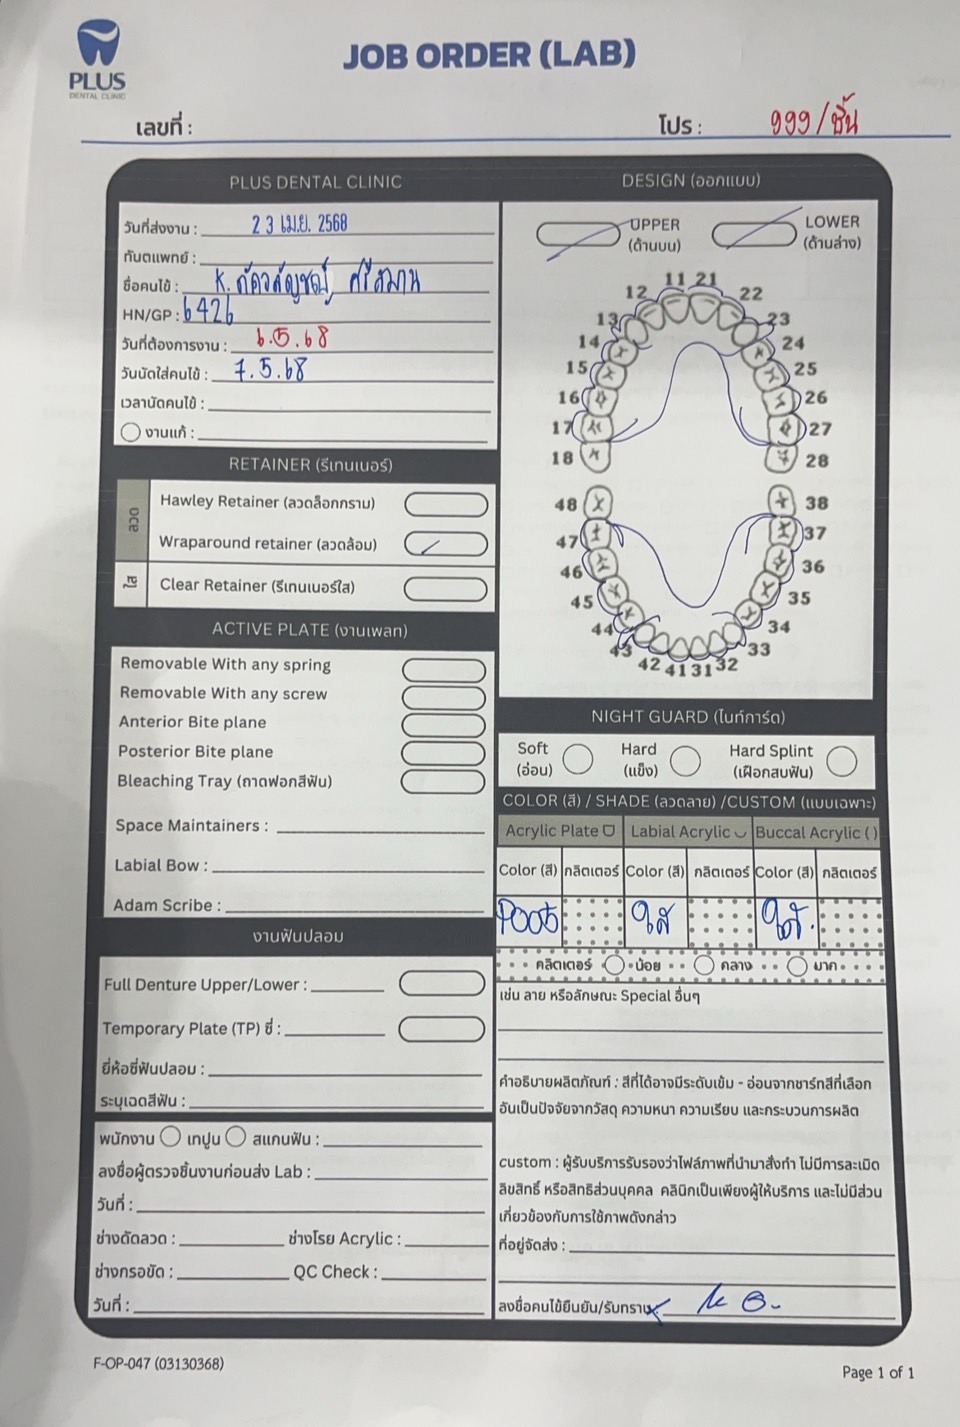 PLUS
DENTAL CLINIC
JOB ORDER (LAB)
เลขที่ :
โปร : 999/ชิ้น
PLUS DENTAL CLINIC
วันที่ส่งงาน : 23 เม.ย. 2568
ทันตแพทย์ :
ชื่อคนไข้ : K. ศรีสมาน
HN/GP : 6426
วันที่ต้องการงาน : 6.5.68
วันนัดใส่คนไข้ : 7.5.68
เวลานัดคนไข้ :
งานแก้ :
RETAINER (รีเทนเนอร์)
ลวด
Hawley Retainer (ลวดล็อกกราม)
Wraparound retainer (ลวดล้อม)
ใส
Clear Retainer (รีเทนเนอร์ใส)
ACTIVE PLATE (งานเพลท)
Removable With any spring
Removable With any screw
Anterior Bite plane
Posterior Bite plane
Bleaching Tray (ถาดฟอกสีฟัน)
Space Maintainers :
Labial Bow :
Adam Scribe :
งานฟันปลอม
Full Denture Upper/Lower :
Temporary Plate (TP) ซี่ :
ยี่ห้อซี่ฟันปลอม :
ระบุเฉดสีฟัน :
พนักงาน เทปูน สแกนฟัน :
ลงชื่อผู้ตรวจชิ้นงานก่อนส่ง Lab :
วันที่ :
ช่างดัดลวด : ช่างโรย Acrylic :
ช่างกรอขัด : QC Check :
วันที่ :
DESIGN (ออกแบบ)
UPPER (ด้านบน)
LOWER (ด้านล่าง)
11 21
12 22
13 23
14 24
15 25
16 26
17 27
18 28
48 38
47 37
46 36
45 35
44 34
43 33
42 41 31 32
NIGHT GUARD (ไนท์การ์ด)
Soft (อ่อน)
Hard (แข็ง)
Hard Splint (เฝือกสบฟัน)
COLOR (สี) / SHADE (ลวดลาย) /CUSTOM (แบบเฉพาะ)
Acrylic Plate Labial Acrylic Buccal Acrylic ( )
Color (สี) กลิตเตอร์ Color (สี) กลิตเตอร์ Color (สี) กลิตเตอร์
P005 ใส ใส
กลิตเตอร์ น้อย กลาง มาก
เช่น ลาย หรือลักษณะ Special อื่นๆ
คำอธิบายผลิตภัณฑ์ : สีที่ได้อาจมีระดับเข้ม - อ่อนจากชาร์ทสีที่เลือก
อันเป็นปัจจัยจากวัสดุ ความหนา ความเรียบ และกระบวนการผลิต
custom : ผู้รับบริการรับรองว่าไฟล์ภาพที่นำมาสั่งทำ ไม่มีการละเมิด
ลิขสิทธิ์ หรือสิทธิส่วนบุคคล คลินิกเป็นเพียงผู้ให้บริการ และไม่มีส่วน
เกี่ยวข้องกับการใช้ภาพดังกล่าว
ที่อยู่จัดส่ง :
ลงชื่อคนไข้ยืนยัน/รับทราบ
F-OP-047 (03130368)
Page 1 of 1